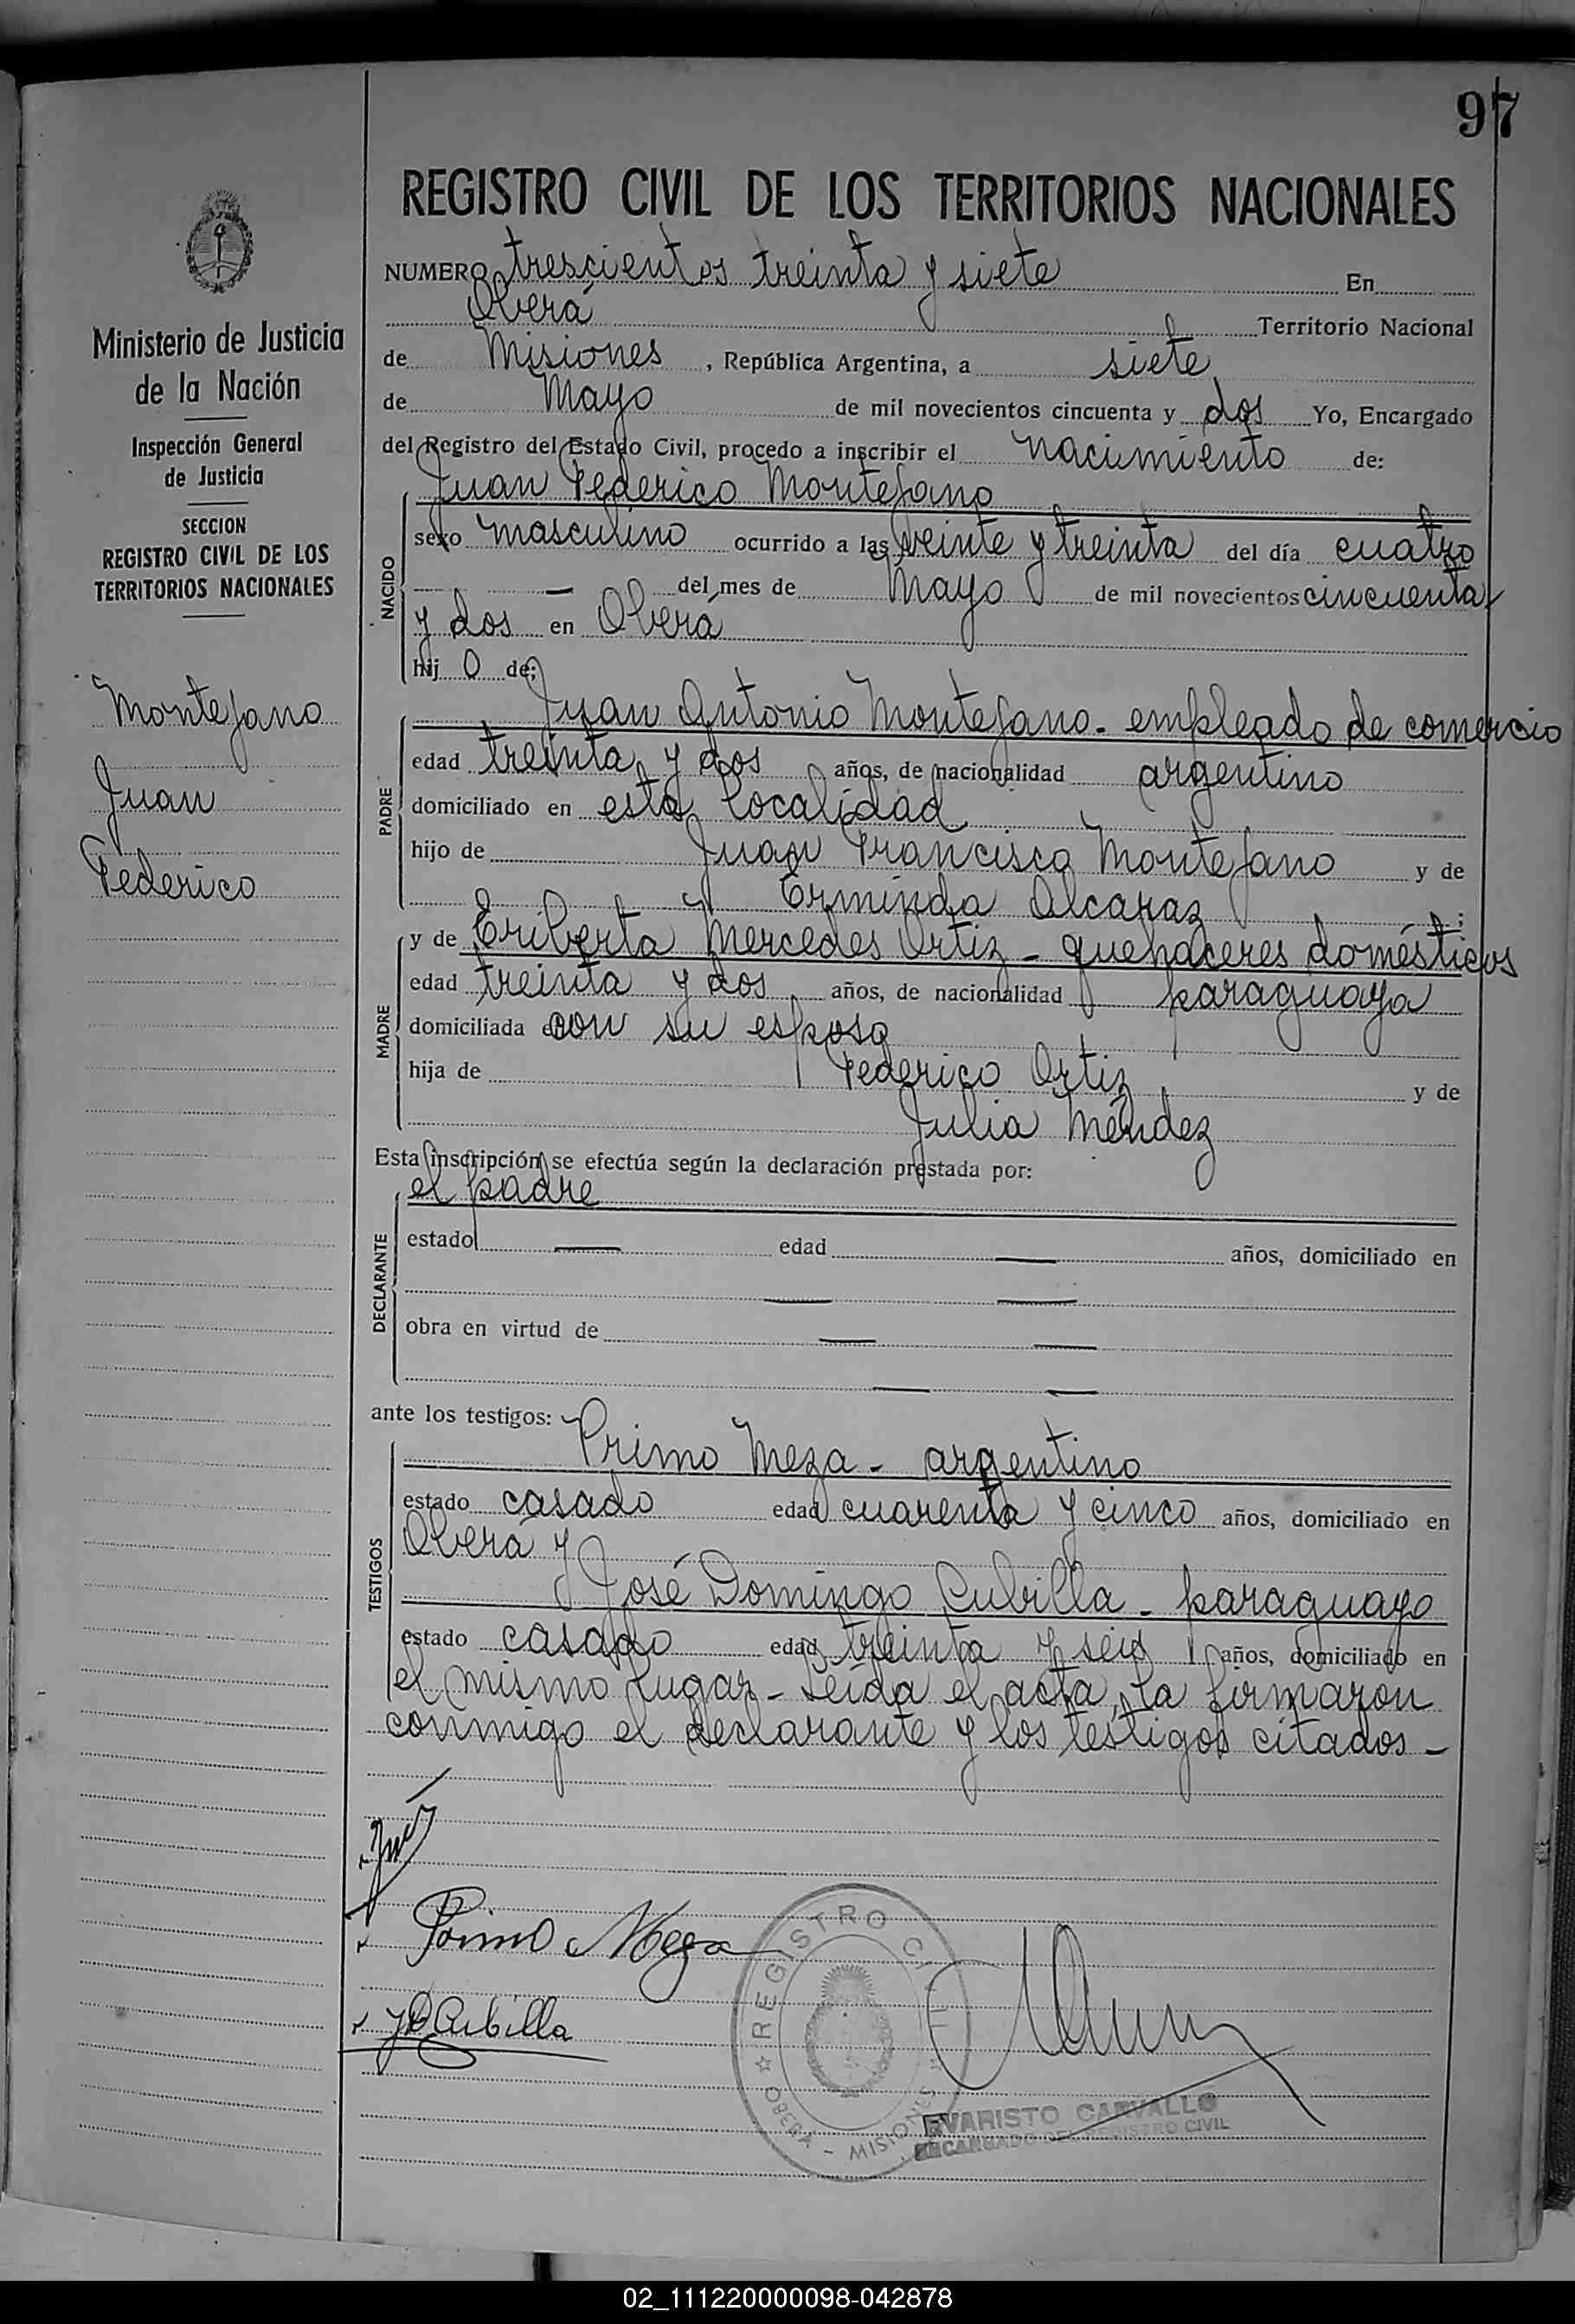 97
REGISTRO CIVIL DE LOS TERRITORIOS NACIONALES
NUMERO trescientos treinta y siete En
Oberá Territorio Nacional
de Misiones, República Argentina, a siete
de Mayo de mil novecientos cincuenta y dos Yo, Encargado
del Registro del Estado Civil, procedo a inscribir el nacimiento de:
Juan Federico Montejano
NACIDO
sexo masculino ocurrido a las veinte y treinta del día cuatro
— del mes de Mayo de mil novecientos cincuenta
y dos en Oberá
hij o de:
PADRE
Juan Antonio Montejano - empleado de comercio
edad treinta y dos años, de nacionalidad argentino
domiciliado en esta localidad
hijo de Juan Francisco Montejano y de
Erminda Alcaraz ;
MADRE
y de Eriberta Mercedes Ortiz - quehaceres domésticos
edad treinta y dos años, de nacionalidad paraguaya
domiciliada con su esposo
hija de Federico Ortiz y de
Julia Méndez
Esta inscripción se efectúa según la declaración prestada por:
DECLARANTE
el padre
estado — edad — años, domiciliado en
— —
obra en virtud de — —
— —
ante los testigos:
TESTIGOS
Primo Meza - argentino
estado casado edad cuarenta y cinco años, domiciliado en
Oberá y
José Domingo Cubilla - paraguayo
estado casado edad treinta y seis años, domiciliado en
el mismo lugar - Leída el acta, la firmaron
conmigo el declarante y los testigos citados -
Primo Meza
J D Cubilla
REGISTRO CIVIL
OBERA - MISIONES
EVARISTO CARVALLO
ENCARGADO DEL REGISTRO CIVIL
Ministerio de Justicia
de la Nación
Inspección General
de Justicia
SECCION
REGISTRO CIVIL DE LOS
TERRITORIOS NACIONALES
Montejano
Juan
Federico
02_111220000098-042878